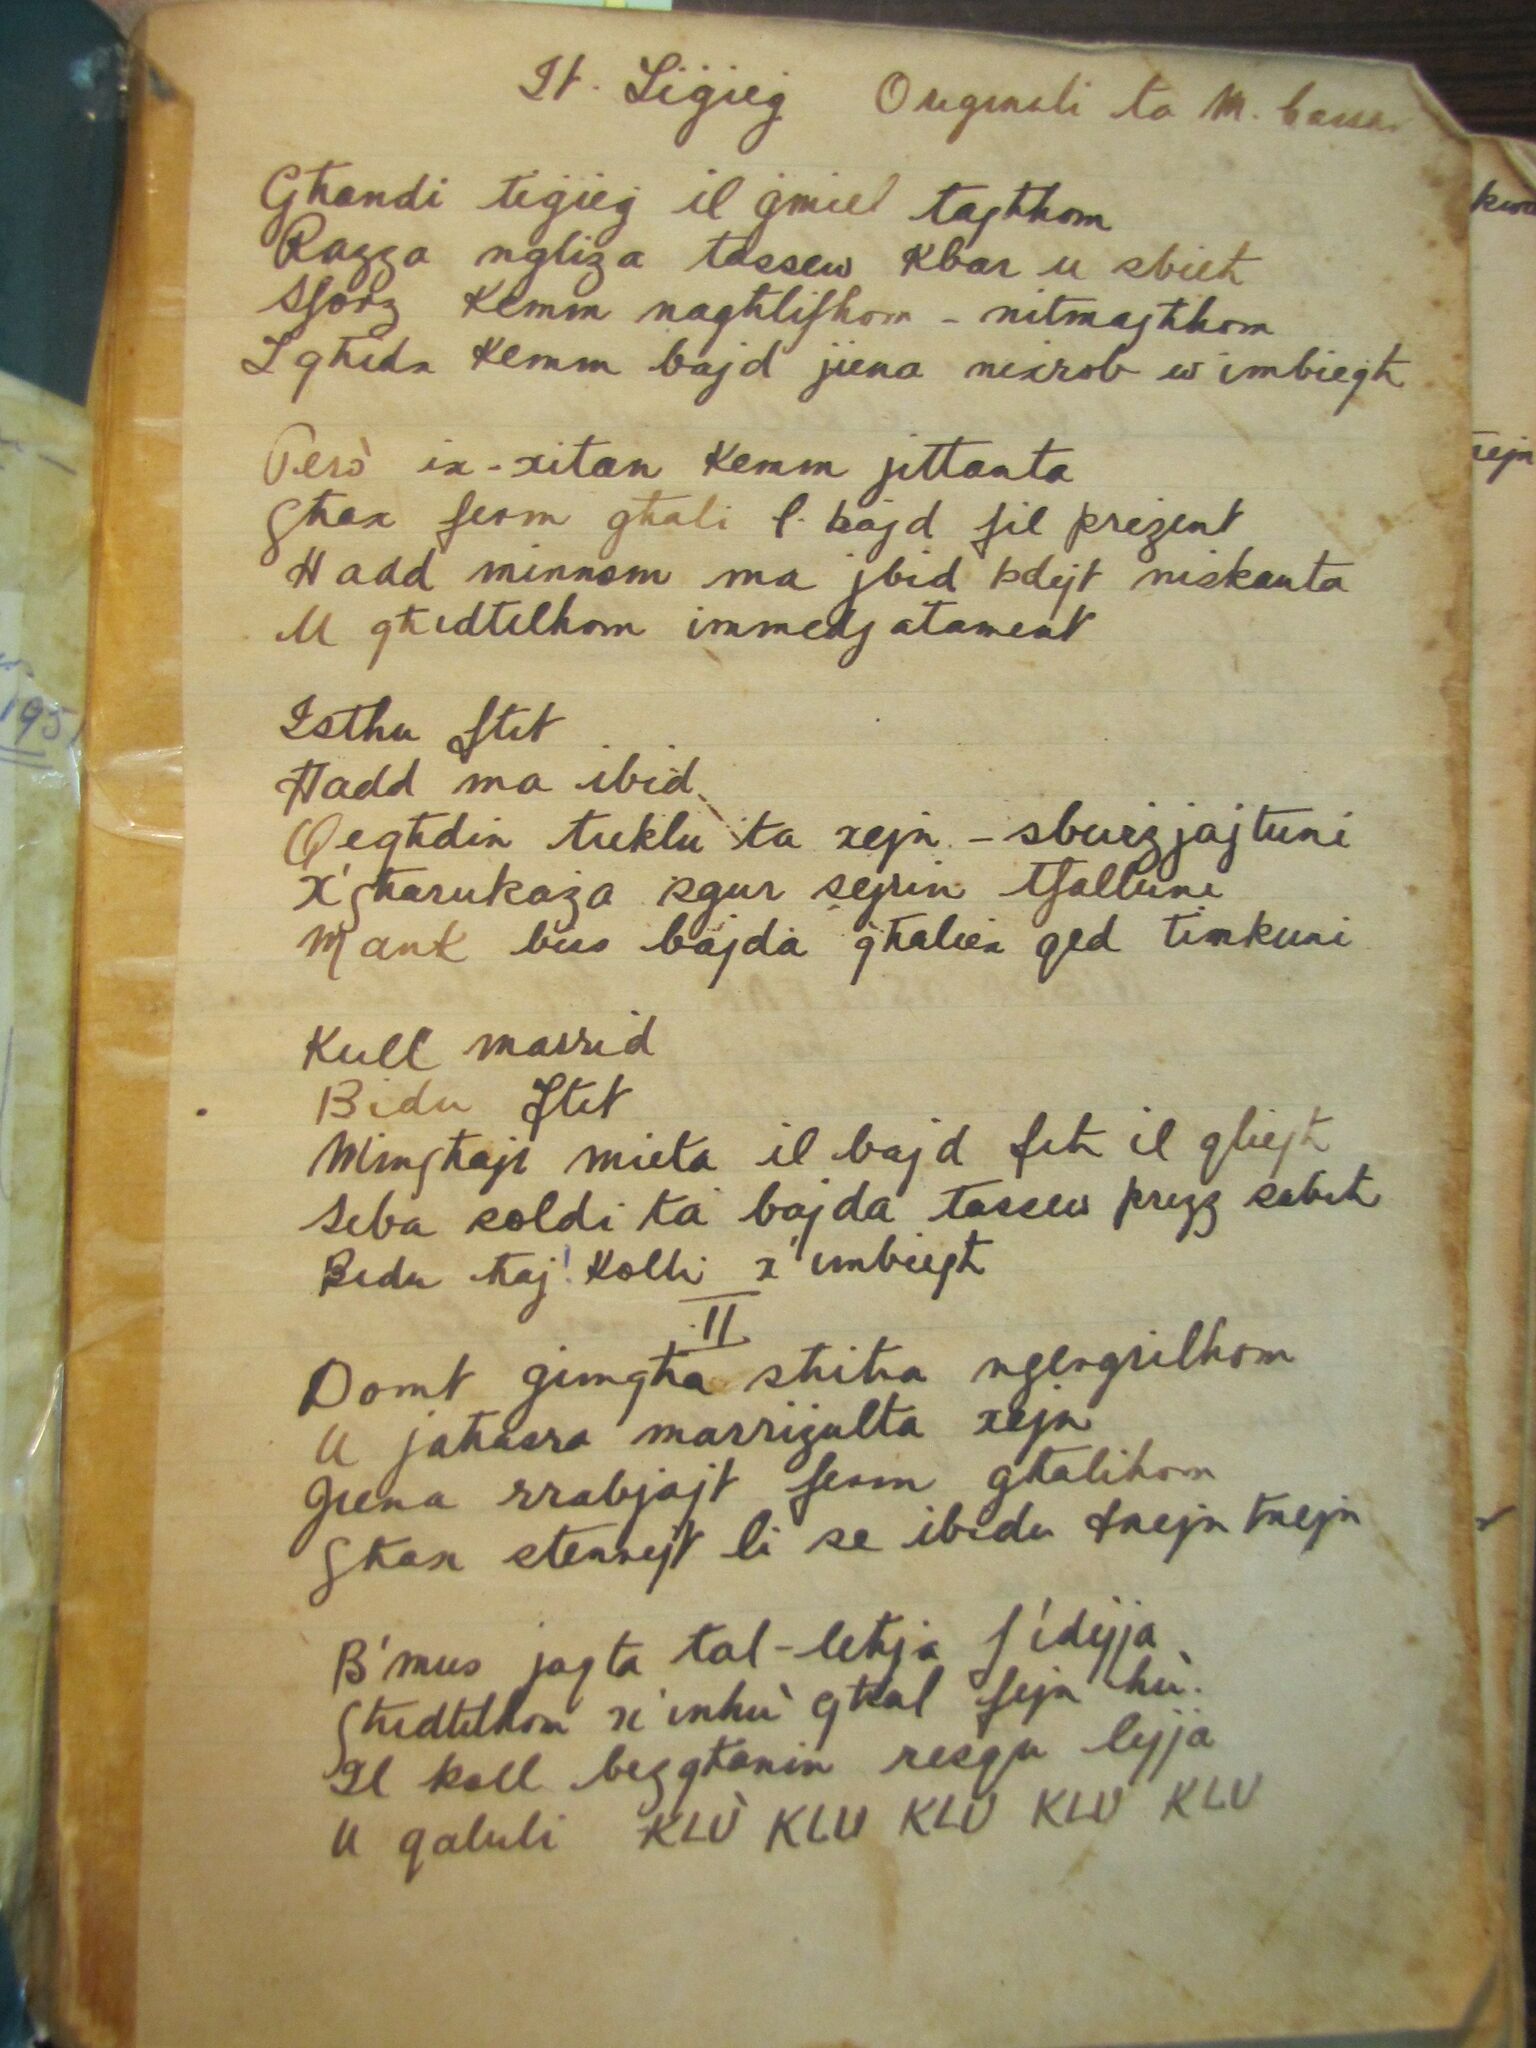 It. Tiġieġ Originali ta M.
Għandi tiġieġ il ġmiel tagħhom
Razza ngliza tassew kbar u sbieħ
Sforz kemm nagħlifhom - nitmagħhom
Tgħidx kemm bajd jiena nixrob w imbiegħ
Però ix-xitan kemm jittanta
Għax ferm għali l-bajd fil prezent
Ħadd minnom ma jbid bdejt niskanta
U għedtilhom immedjatament
Istħu ftit
Ħadd ma ibid
Qegħdin tieklu ta xejn - sburzjajtuni
X'għarukaża sgur sejrin tfalluni
Mank biss bajda għaliex qed timkuni
Kull marrid
Bidu ftit
Mingħajr mieta il bajd fih il qliegħ
Seba soldi ta' bajda tassew prezz sabiħ
Bidu ħaj! Kolli x'imbiegħ
II
Domt ġimgħa sħiħa ngergrilhom
U jaħasra marriżulta xejn
Jiena rrabjajt ferm għalihom
Għax stennejt li se ibidu tnejn tnejn
B'mus jaqta tal-leħja f'idejja
Għedtilhom x'inhu għal fejn hu.
Il koll bezgħanin resqu lejja
U qaluli KLÙ KLU KLU KLU KLU
195